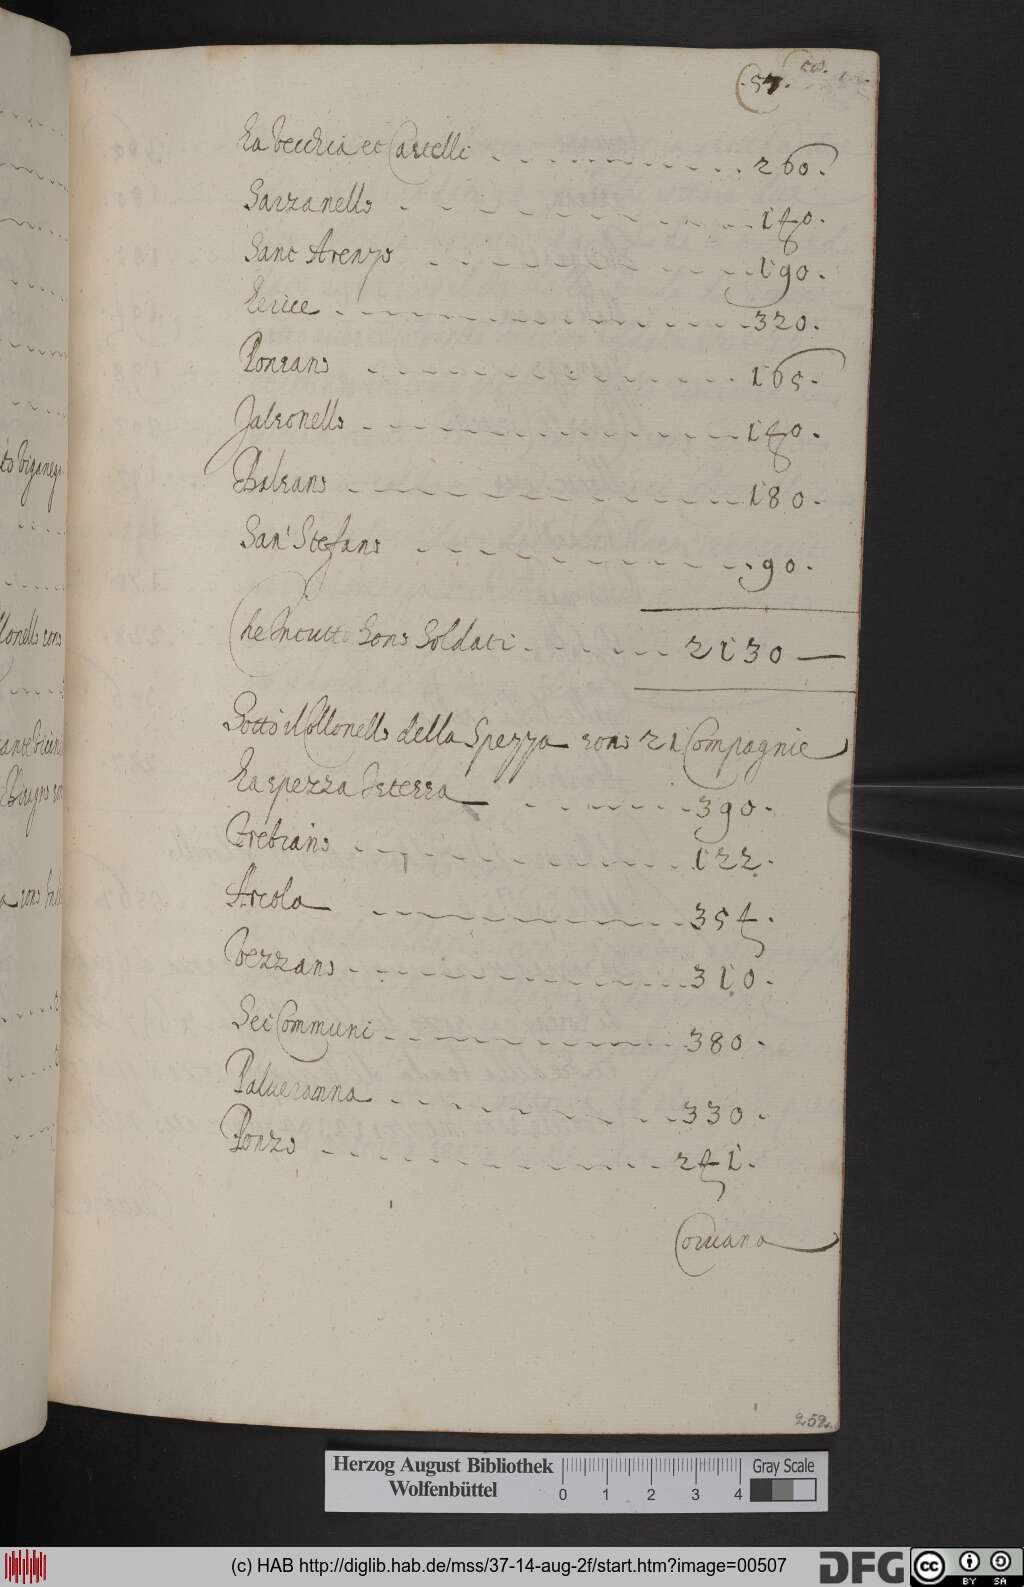 57. 58.
La Vecchia et Castelli 260.
Sarzanello 140.
Sant Arenzo 190.
Lerice 320.
Ponzano 165.
Falconello 140.
Bolzano 180.
San Stefano 90.
Che Intutto sono Soldati 2130
Sotto il Collonello della Spezza sono 21 Compagnie
La spezza et terra 390.
Trebiano 122.
Arcola 354.
Vezzano 310.
Sei Communi 380.
Palveranna 330.
Ponzo 241.
Corvana
252.
Herzog August Bibliothek
Wolfenbüttel
0 1 2 3 4
Gray Scale
(c) HAB http://diglib.hab.de/mss/37-14-aug-2f/start.htm?image=00507
DFG
cc BY SA